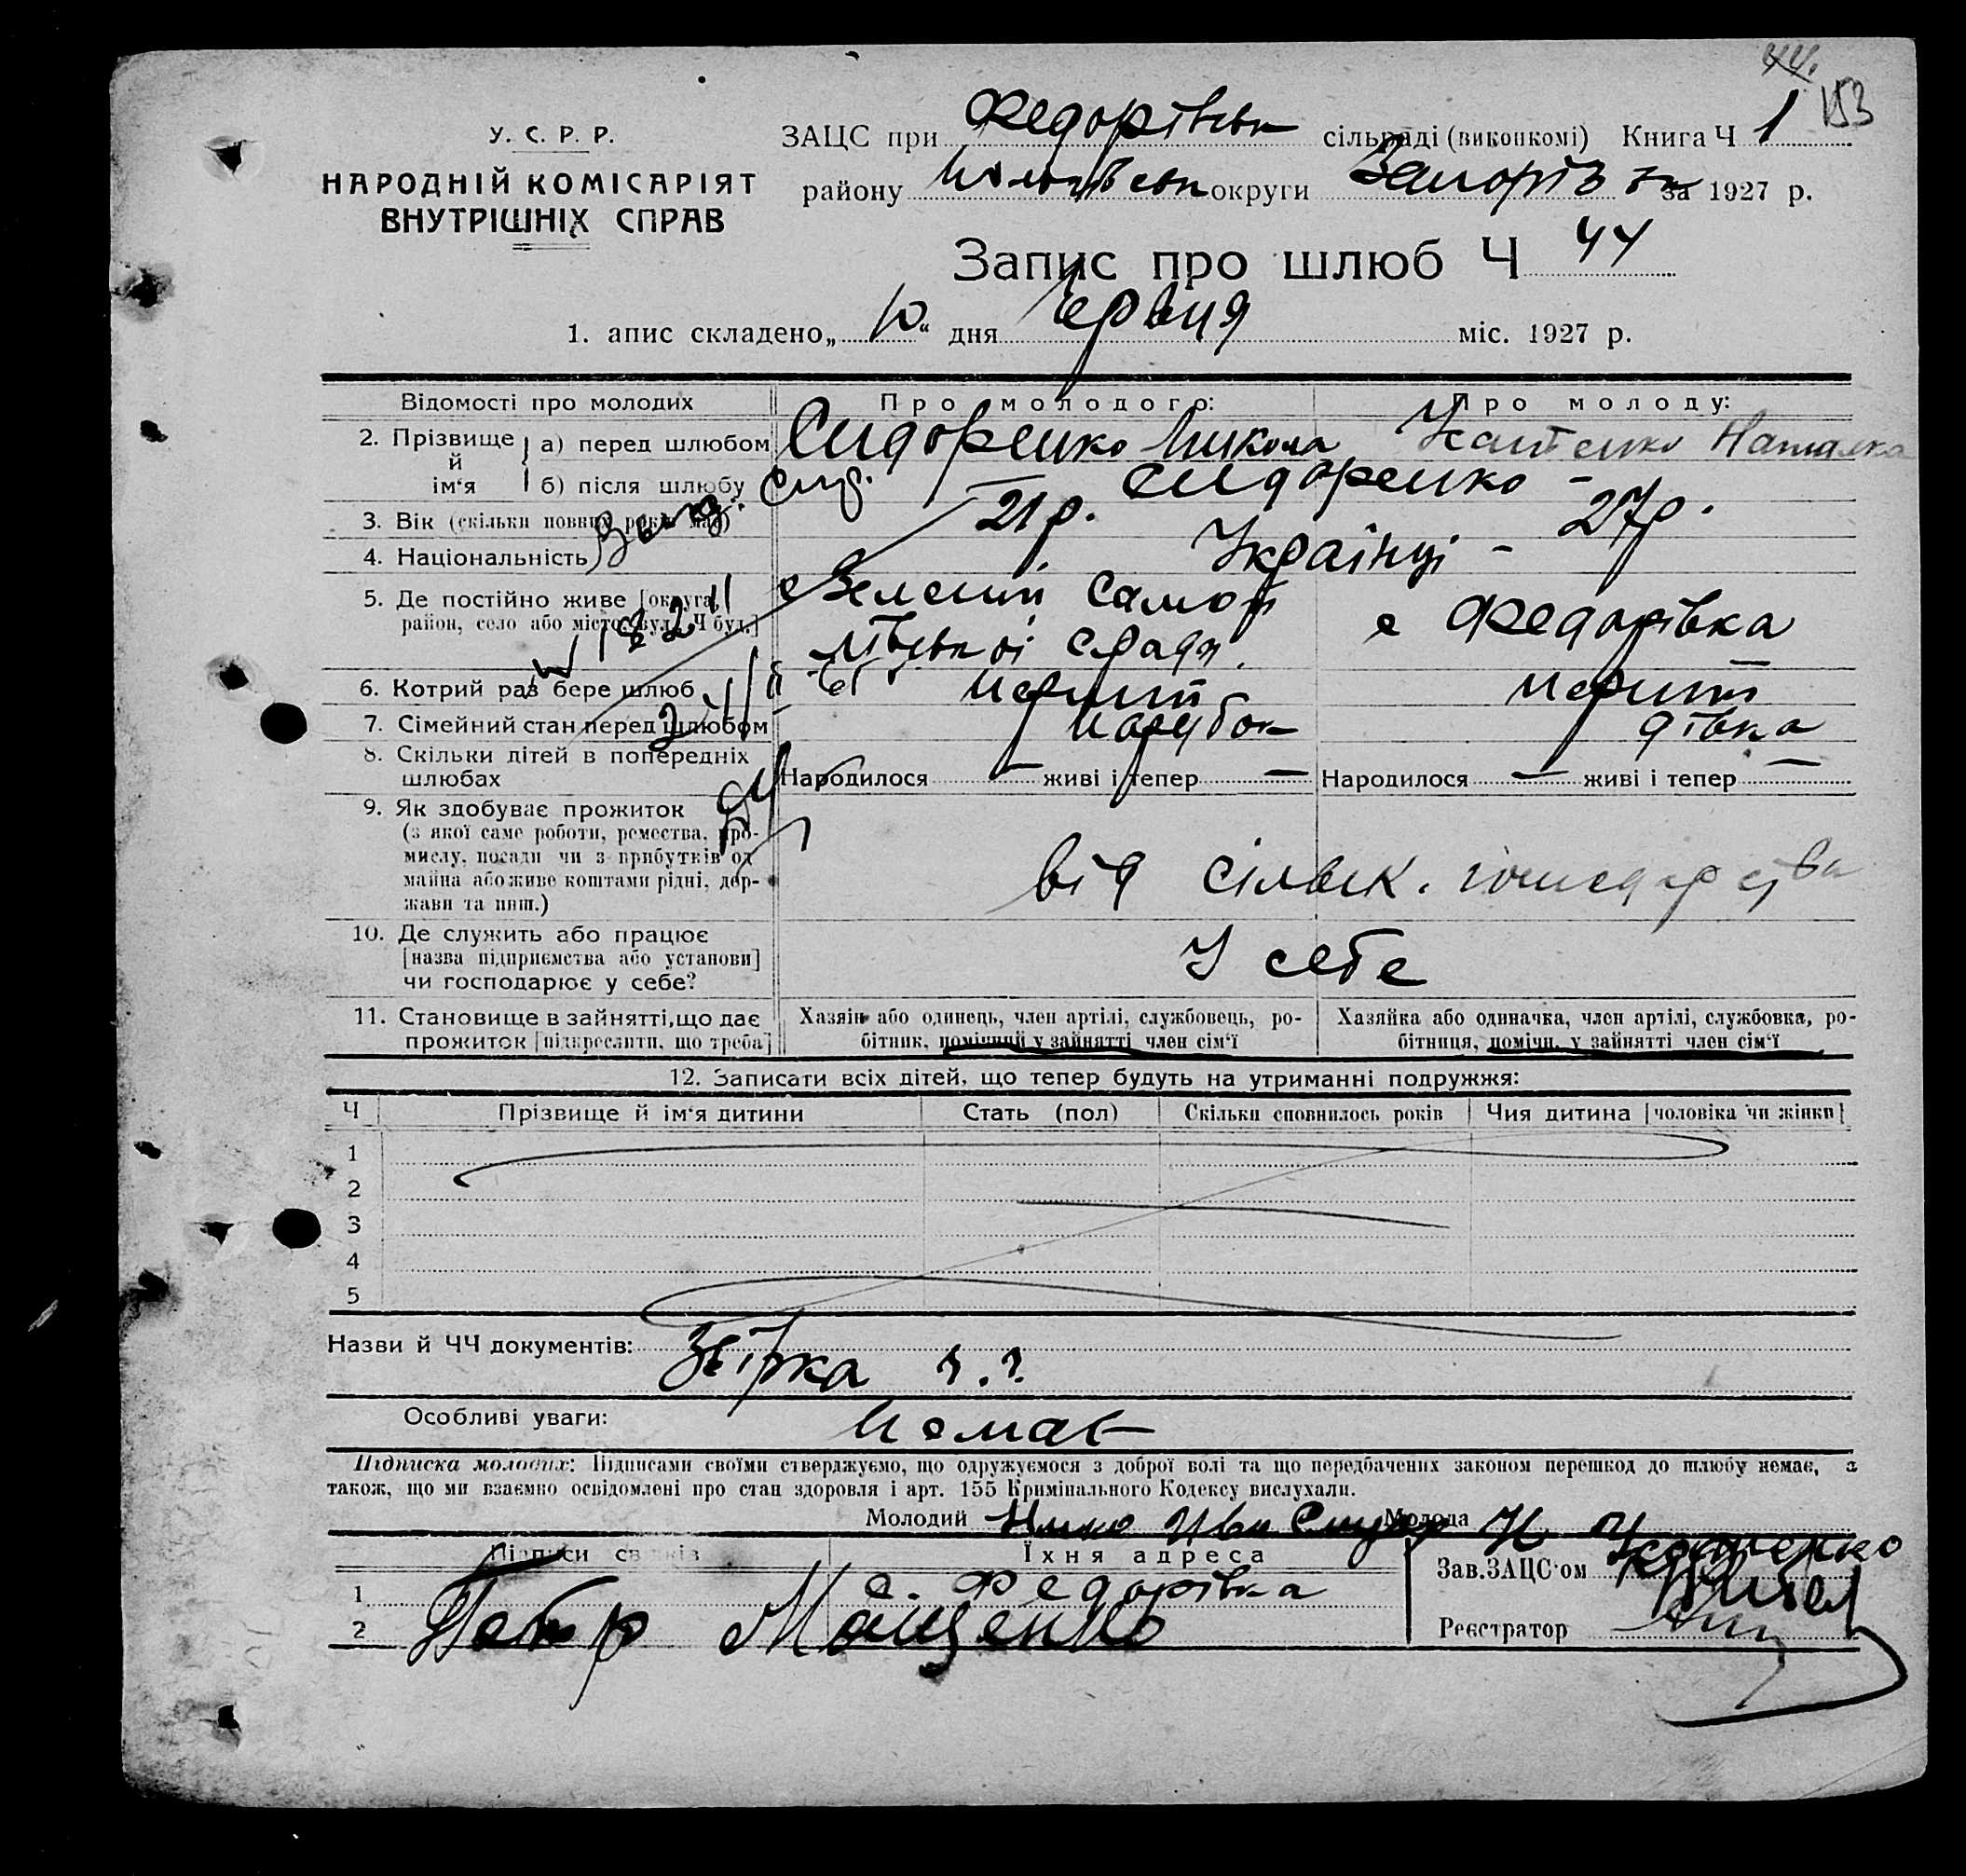 44.
153
У. С. Р. Р.
НАРОДНІЙ КОМІСАРІЯТ
ВНУТРІШНІХ СПРАВ
ЗАЦС при Федорівськ сільраді (виконкомі) Книга Ч 1
району округи Запоріз за 1927 р.
Запис про шлюб Ч 44
1. апис складено „10“ дня Червня міс. 1927 р.
Відомості про молодих
Про молодого:
Про молоду:
2. Прізвище й ім‘я
а) перед шлюбом
Сидоренко Микола
Наталка
б) після шлюбу
Сидоренко –
3. Вік (скільки повних років має)
21 р.
27 р.
4. Національність
Українці –
5. Де постійно живе [округа, район, село або місто, вул., Ч буд.]
с Федорівка
6. Котрий раз бере шлюб
перший
перший
7. Сімейний стан перед шлюбом
парубок
дівка
8. Скільки дітей в попередніх шлюбах
Народилося — живі і тепер —
Народилося — живі і тепер —
9. Як здобуває прожиток
(з якої саме роботи, ремества, про-
мислу, посади чи з прибутків од
майна або живе коштами рідні, дер-
жави та инш.)
від сільськ. господарства
10. Де служить або працює
[назва підприємства або установи]
чи господарює у себе?
У себе
11. Становище в зайнятті, що дає
прожиток [підкреслити, що треба]
Хазяін або одинець, член артілі, службовець, ро-
бітник, помічний у зайнятті член сім‘ї
Хазяйка або одиначка, член артілі, службовка, ро-
бітниця, помічн. у зайнятті член сім‘ї
12. Записати всіх дітей, що тепер будуть на утриманні подружжя:
Ч
Прізвище й ім‘я дитини
Стать (пол)
Скільки сповнилось років
Чия дитина [чоловіка чи жінки]
1
2
3
4
5
Назви й ЧЧ документів:
Особливі уваги: Немає
Підписка молодих: Підписами своїми стверджуємо, що одружуємося з доброї волі та що передбачених законом перешкод до шлюбу немає, а
також, що ми взаємно освідомлені про стан здоровля і арт. 155 Кримінального Кодексу вислухали.
Молодий
Молода
Підписи свідків
Їхня адреса
Зав.ЗАЦС‘ом
1
с. Федорівка
2
Мащенко
Реєстратор